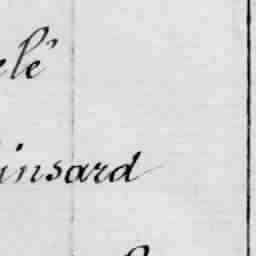 elé
insard